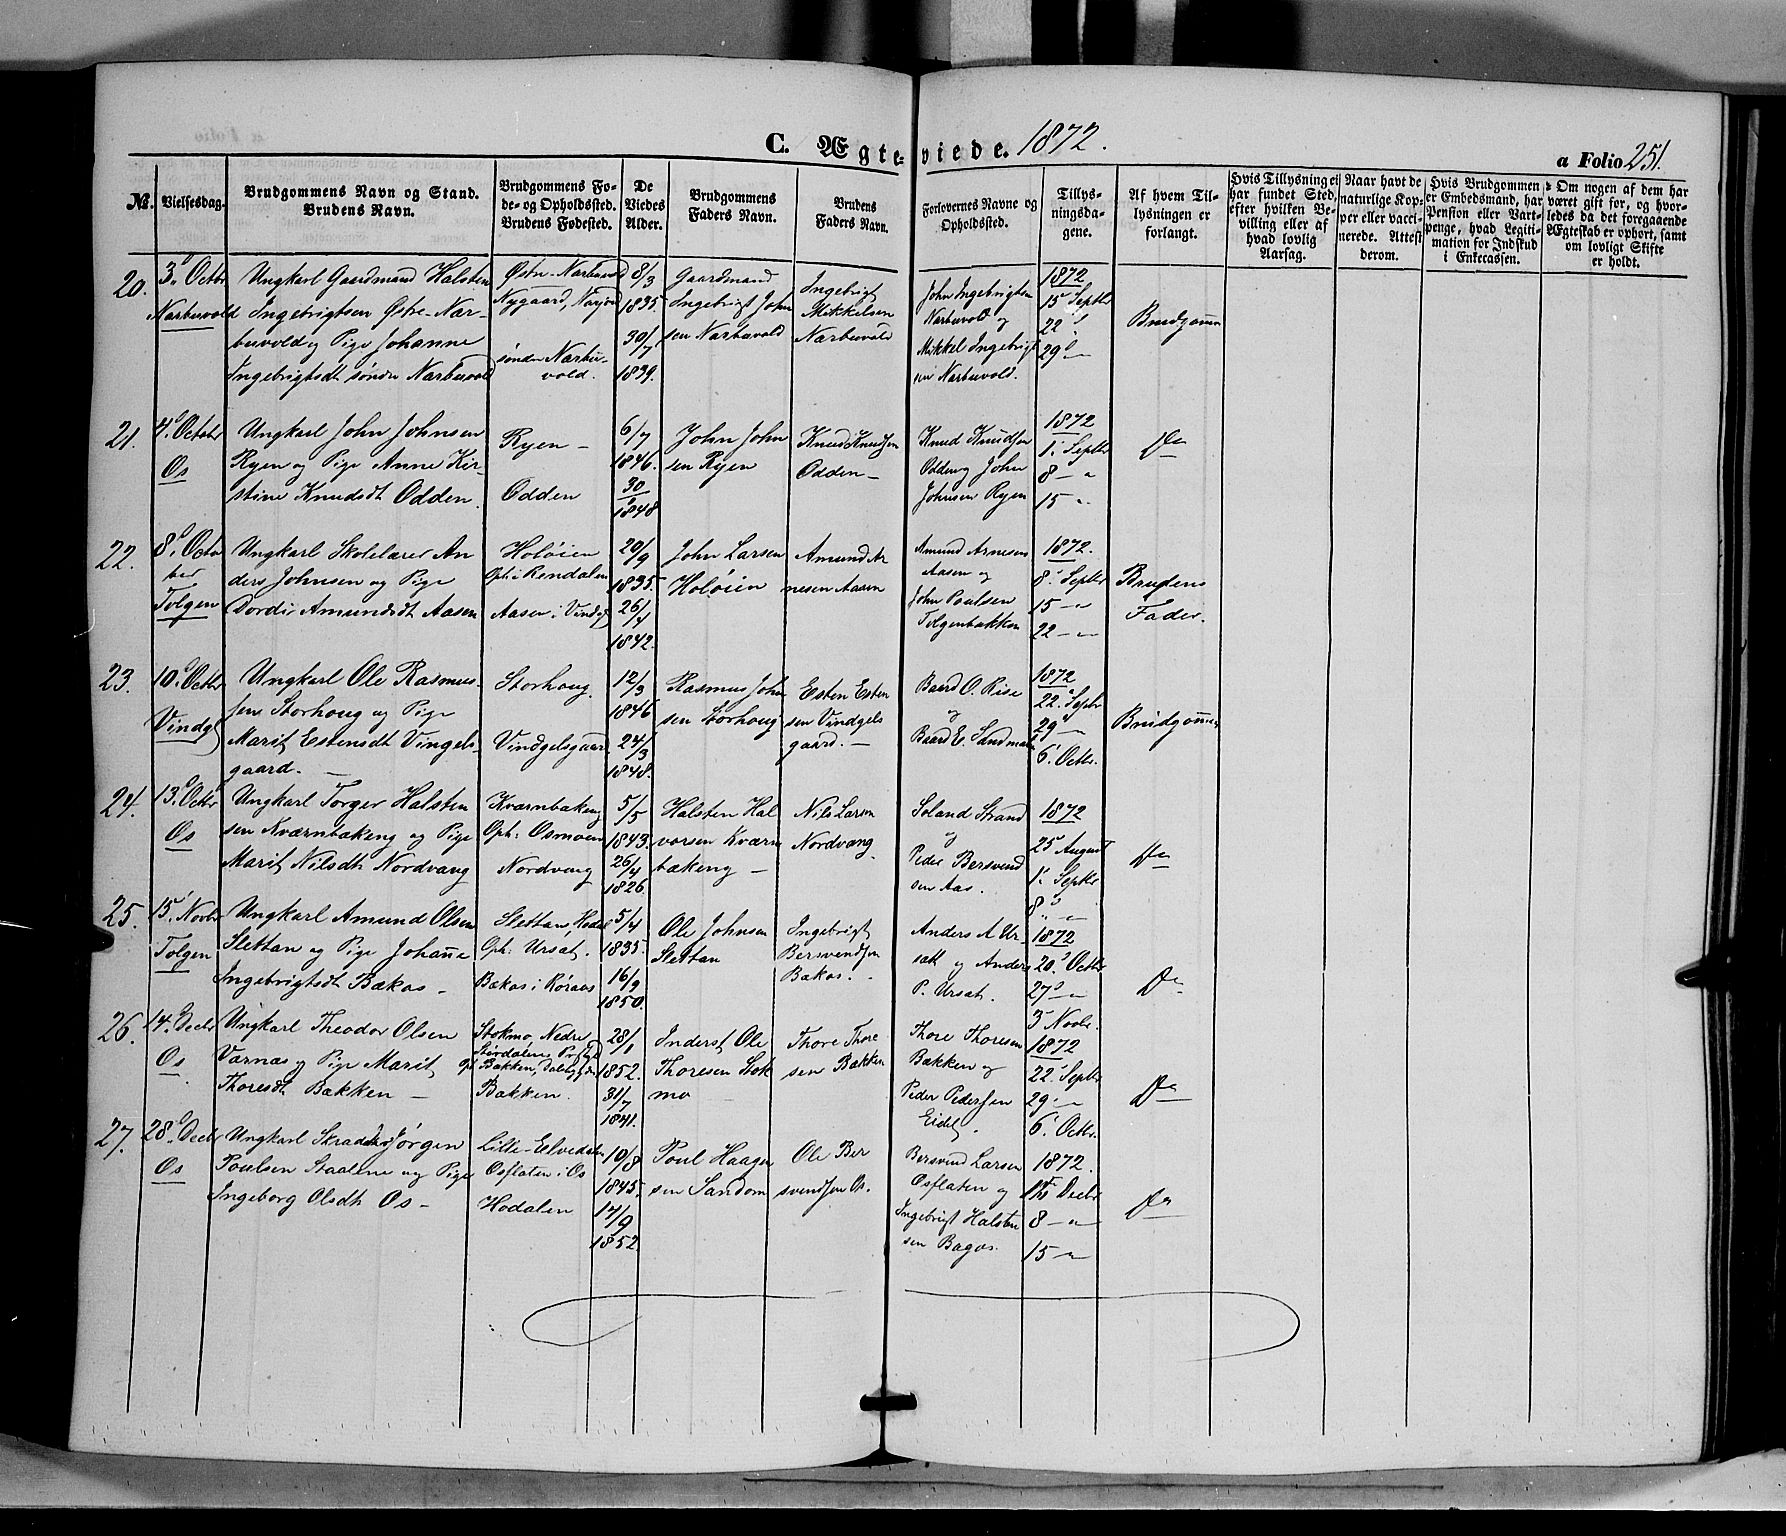 C. Ægte-viede. 1872.
a Folio 251.
No.
Vielsesdag.
Brudgommens Navn og Stand.
Brudens Navn.
Brudgommens Fo-
de- og Opholdssted.
Brudens Fødested.
De
Viedes
Alder.
Brudgommens
Faders Navn.
Brudens
Faders Navn.
Forlovernes Navne og
Opholdssted.
Tillys-
ningsda-
gene.
Af hvem Til-
lysningen er
forlangt.
Hvis Tillysning ei
har fundet Sted,
efter hvilken Be-
villing eller af
hvad lovlig
Aarsag.
Naar havt de
naturlige Kop-
per eller vacci-
nerede. Attest
derom.
Hvis Brudgommen
er Embedsmand, har
Pension eller Vart-
penge, hvad Legiti-
mation for Indskud
i Enkecassen.
Om nogen af dem har
været gift for, og hvor-
ledes da det foregaaende
Ægteskab er ophort, samt
om lovligt Skifte
er holdt.
20.
3. Octbr
Narbuvold
Ungkarl Gaardmand Halsten
Ingebrigtsen Østre-Nar-
buvold og Pige Johanne
Ingebrigtsdt søndre Narbuvold
Østre-Narbuvold
Nygaard,
søndre Narbu-
vold.
8/3
1835.
30/7
1839.
Gaardmand
Ingebrigt John
sen Narbuvold
Ingebrigt
Mikkelsen
Narbuvold
John Ingebrigtsen
Narbuvold og
Mikkel Ingebrigt
sen Narbuvold.
1872
15 Septbr
22 "
29 — "
Brudgommen
21.
4. Octobr
Os
Ungkarl John Johnsen
Ryen og Pige Anne Kir-
stine Knudsdt Odden.
Ryen —
Odden
6/7
1846.
30
1848
John John
sen Ryen
Knud Knudsen
Odden —
Knud Knudsen
Odden og John
Johnsen Ryen
1872
1. Septbr
8 — "
15 "
Do
22.
8. Octo
ber
Tolgen
Ungkarl Skolelærer An
ders Johnsen og Pige
Dordi Amundsdt Aasen
Holøien
Oph: i Rendalen
Aasen i Vindgl
29/9
1835.
26/4
1842.
John Larsen
Holøien
Amund Ar
nesen Aasen
Amund Arnesen
Aasen og
John Poulsen
Tolgenbakken
1872.
8. Septbr
15 — "
22 — "
Brudens
Fader.
23.
10. Octbr
Vindgl
Ungkarl Ole Rasmus-
sen Storhoug og Pige
Marit Estensdt Vingels-
gaard. —
Storhoug.
Vindgelsgaard
12/3
1846
24/3
1848.
Rasmus John
sen Storhoug
Esten Esten
sen Vindgels
gaard. —
Baard O. Rise
og
Baard E. Sandmæl
1872
22. Septbr
29 —
6. Octbr.
Brudgommen
24.
13. Octbr
Os
Ungkarl Torger Halsten
sen Kværnbækeng og Pige
Marit Nilsdt Nordvang
Kværnbækeng
Oph: Osmoen
Nordvang
5/5
1843.
26/4
1826.
Halsten Hal
vorsen Kværn
bækeng —
Nils Larsen
Nordvang.
Strand
og
Peder Bersvend
sen Aas.
1872
25 August
1. Septbr
8 — "
Do
25.
15. Novbr
Tolgen
Ungkarl Amund Olsen
Slettan og Pige Johanne
Ingebrigtsdt Bækos —
Slettan, Hodal
Oph: Ursat.
Bækos i Røraas
5/4
1835.
16/9
1850.
Ole Johnsen
Slettan
Ingebrigt
Bersvendsen
Bækos. -
Anders A Ur-
satt og Anders
P. Ursat.
1872
20. Octbr
27 — "
3 Novbr.
Do
26.
14. Decbr
Os
Ungkarl Theodor Olsen
Varnæs og Pige Marit
Thoresdt Bakken —
Stokmo, Nedre
Størdalens Prstgd
Oph Bakken, Dalsbygden
Bakken.
28/1
1852.
31/7
1841.
Inderst Ole
Thoresen Stok
mo —
Thore Thore
sen Bakken
Thore Thoresen
Bakken og
Peder Pedersen
Eidet.
1872
22 Septbr
29 — "
6. Octbr.
Do
27.
28. Decbr
Os
Ungkarl Skrædder Jørgen
Poulsen Staalene og Pige
Ingeborg Olsdt Os —
Lille-Elvedalen
Osflaten i Os
Hodalen
10/8
1845.
17/9
1852.
Poul Haagen
sen Sandom
Ole Ber
svendsen Os.
Bersvend Larsen
Osflaten og
Ingebrigt Halsten
sen Bagos.
1872.
1. Decbr
8 — "
15 — "
Do